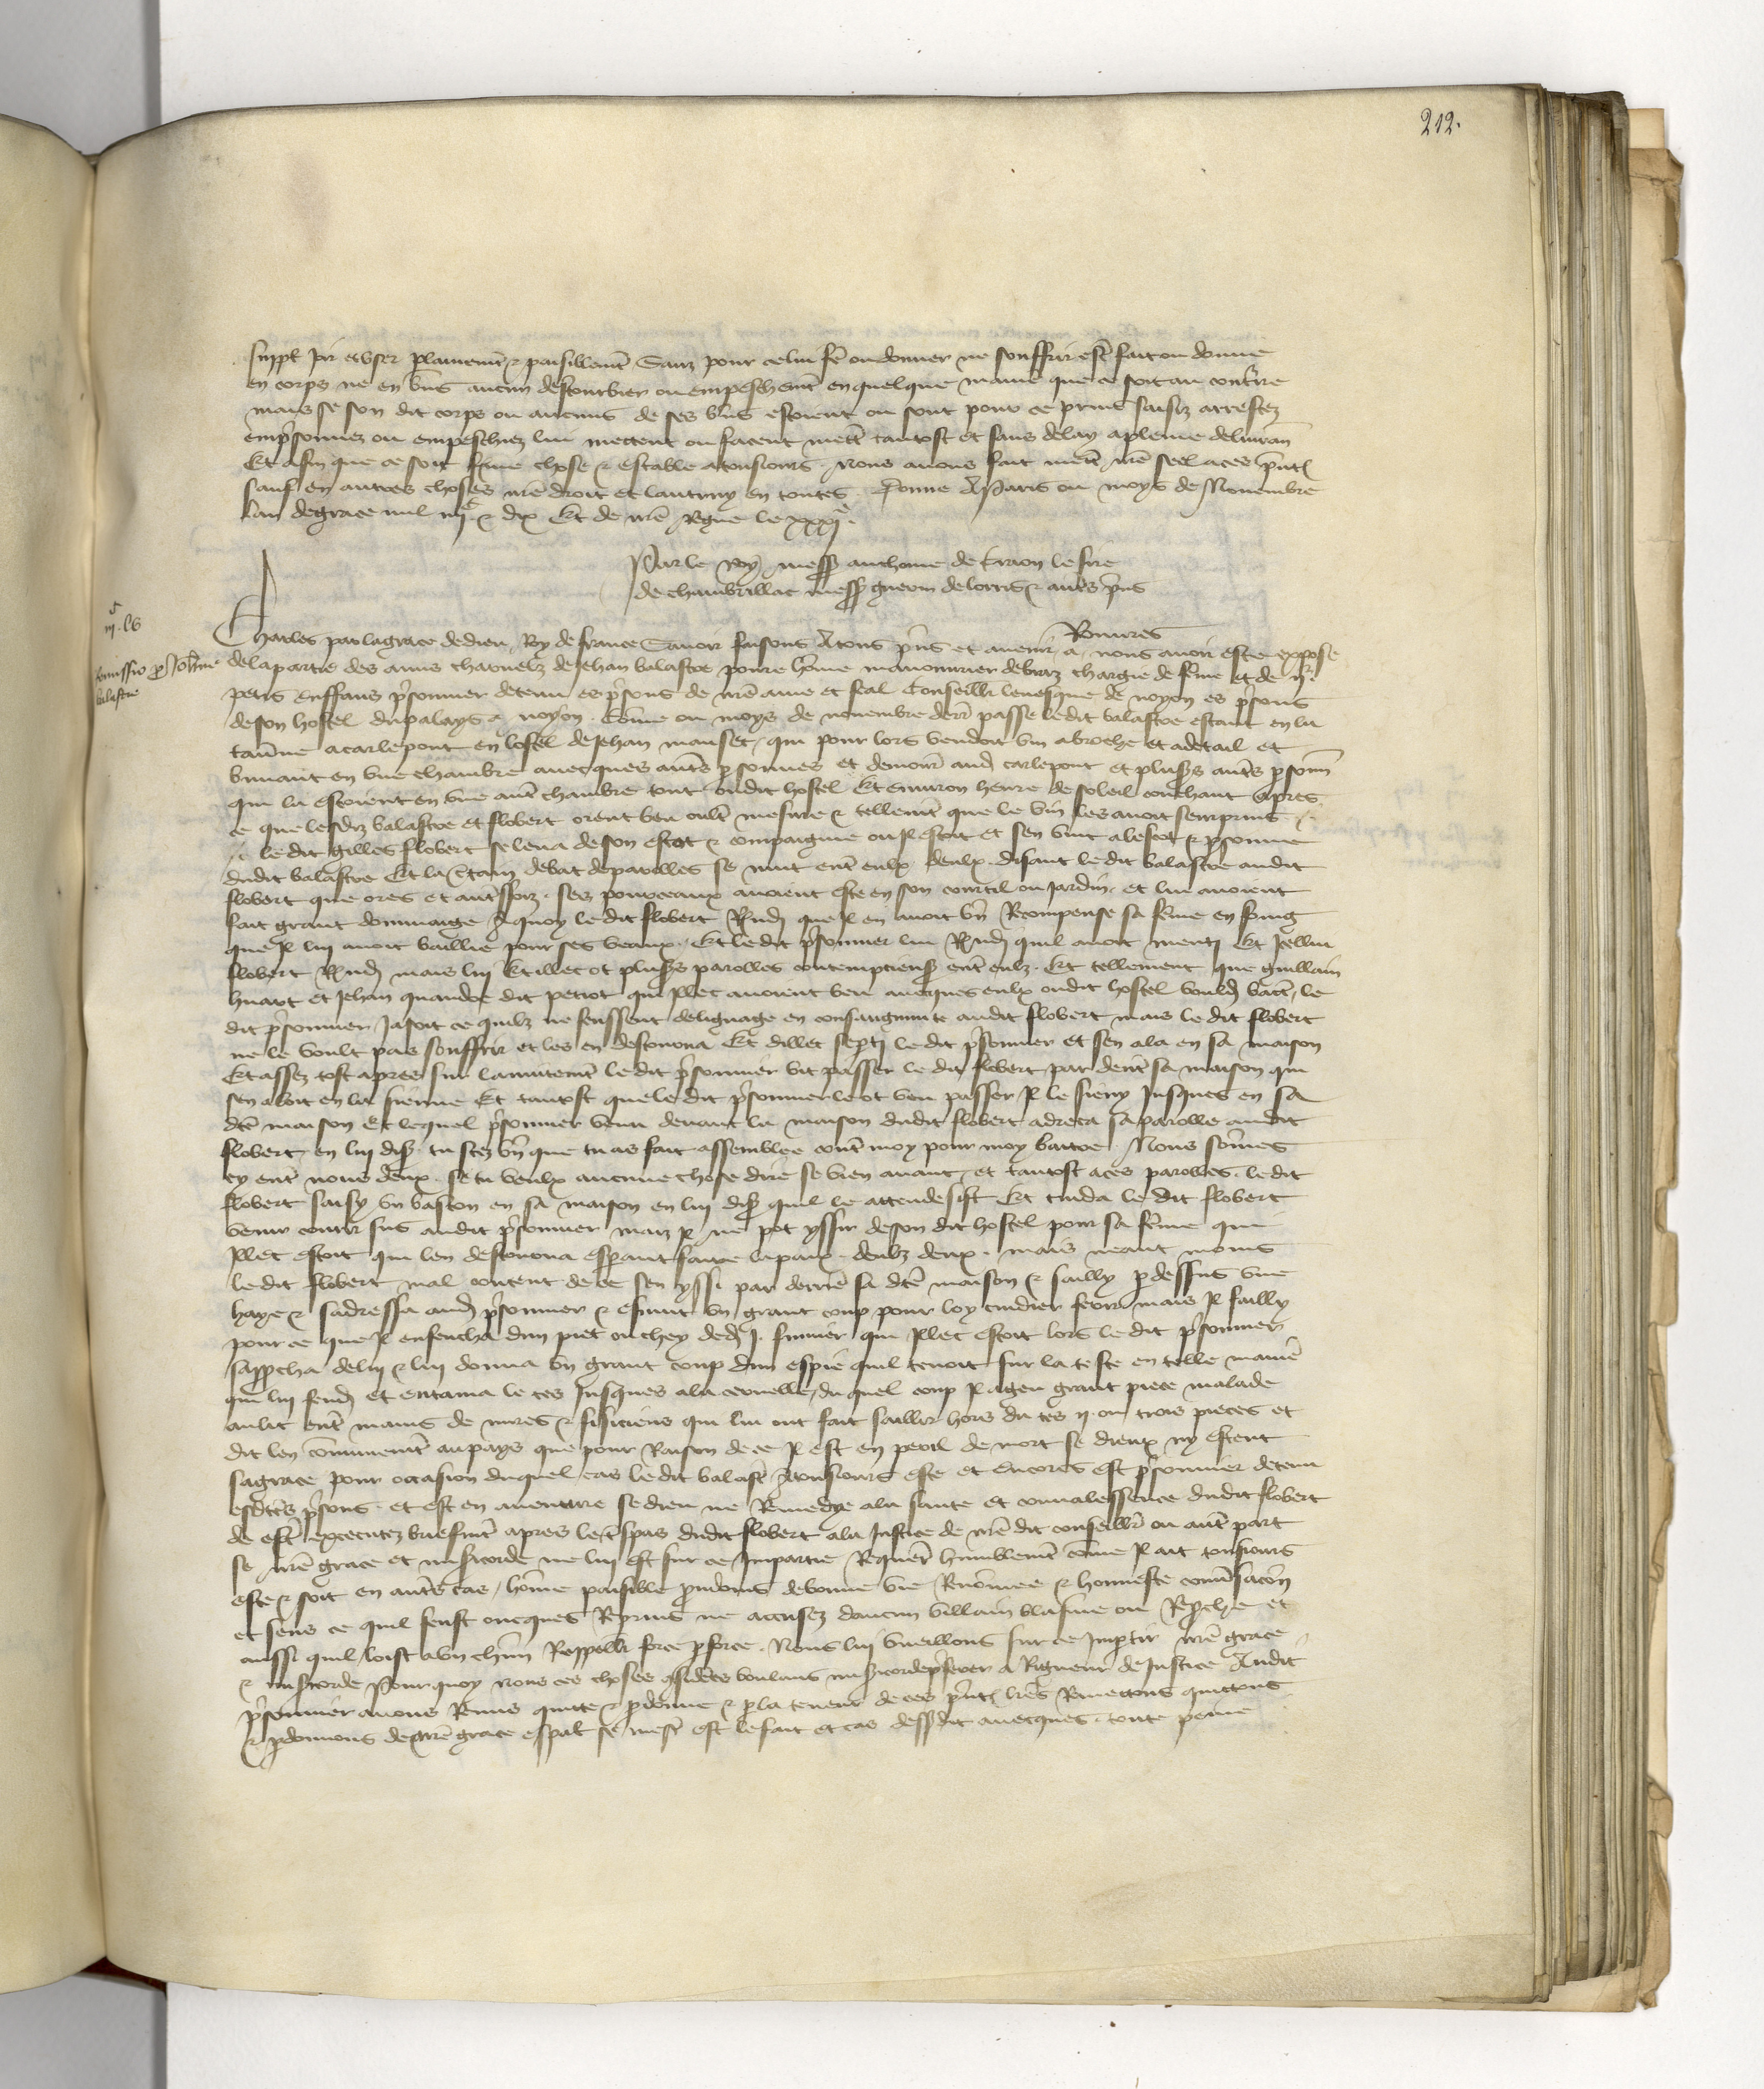 212.
suppl joir et user plainemt & paisiblemt Sanz pour celui fe ou donner ne souffrir estre fait ou donne
en corps ne en biens aucun destourbier ou empeschemt en quelque maniere que ce soit au contre
mais se son dit corps ou aucuns de ses biens estoient ou sont pour ce prins saisiz arrestez
emprisonnez ou empeschiez lui mettent ou facent mett tantost et sans delay a pleine delivran
Et afin que ce soit ferme chose & estable a tousiours Nous avons fait mett nre seel a ces pnt
sauf en autres choses nre droit et lautruy en toutes Donne A Paris ou moys de Novembre
lan de grace mil iiijc & dix Et de nre Regne le xxxje.
Par le Roy mess anthoine de Craon le sire
de chambrillac mess guerin de lorris & autes pns
Charles par la grace de dieu Roy de france Savoir faisons A tous pns et avenir a nous avoir este expose
v
iij. l6
Remissio pro Johanne
balastre
de la partie des amis charnelz de Jehan balastre povre homme manouvrier de braz chargie de feme et de ij
petis enffans prisonnier detenu es prisons de nre ame et feal Conseillr levesque de noyon es prisons
de son hostel du palays a noyon. Come ou moys de novembre derr passe ledit balastre estant en la
taverne a carlepont en lostel de Jehan manset, qui pour lors vendoit vin a broche et a detail et
buvant en une chambre avecques autes personnes et demour aud carlepont et plusrs autes personn
qui la estoient en une aute chambre tout oudit hostel Et environ heure de soleil couchant apres
ce que lesdiz balastre et flobert orent beu oult mesure & tellemt que le vin les avoit seurprins
le dit gilles flobert se leva de son escot & compaignie ou il estoit et sen vint a lescot & personne
dudit balastre Et la certain debat de parolles se mut ent eulx deulx disant le dit balastre audit
flobert que ores et autsfoiz. ses pourceaux avoient este en son courtil ou jardin. et lui avoient
fait grant dommaige A quoy le dit flobert Rnd que il en avoit bn Recompense sa feme en foing
que il lui avoit baillie pour ses veaux. Et le dit prisonnier lui Rnd quil avoit menti Et Icellui
flobert Rnd mais lui Et illec ot plusrs parolles contemptieus ent eulz. Et tellement que guillam
huart et Jehan quandre dit petiot qui illec avoient beu avecques eulx oudit hostel vould bat le
dit prisonnier Jasoit ce quilz ne feussent de lignage en consanguinite audit flobert mais le dit flobert
ne le voult pas souffrir et les en destourna Et dillec sepati le dit prisonnier et sen ala en sa maison
Et assez tost apres sur lanuitemt le dit prisonnier vit passer le dit flobert par devt sa maison qui
sen aloit en la sienne Et tantost que le dit prisonnier le ot veu passer Il le sievy Jusques en sa
dte maison Et lequel prisonnier venu devant la maison dudit flobert adreca sa parolle audit
flobert en lui dis tu scez bn que tu as fait assemblee cont moy pour moy batre. Nous somes
cy ent nous deux. se tu veulx aucune chose dire se vien avant, et tantost a ces parolles. le dit
flobert saisy un baston en sa maison en lui dis quil le attendesist Et cuida le dit flobert
venir courir sus audit prisonnier maiz il ne pot yssir de son dit hostel pour sa feme qui
Illec estoit qui len destourna esperant faire la paix deulz deux. mais neant moins
ledit flobert mal content de ce sen yssi par derrie sa dte maison & sailly p dessus une
haye & sadressa aud prisonnier & esmut un grant coup pour loy cuidier ferir mais il failly
pour ce que il enfencha dun piet ou chey ded J. fumier qui Illec estoit lors le dit prisonnier
sapprocha de lui & lui donna un grant coup dun espie quil tenoit sur la teste en telle manie
qui lui fend et entama le tes Jusques a la cervelle, du quel coup Il a geu grant piece malade
au lit ent mains de mires & fisiciens qui lui ont fait saillir hors du tes ij. ou trois pieces et
dit len communemt au pays que pour Raison de ce Il est en peril de mort se dieux ny estent
sa grace pour occasion duquel cas le dit balast A tousiours este et Encores est prisonnier detenu
esdtes prisons. et est en aventure se dieu ne Remedye a la sante et convalessence dudit flobert
de est executez briefmt apres le trspas dudit flobert a la Justice de nre dit conseillr ou aut part
se nre grace et misricorde ne lui est sur ce Impartie Requert humblemt come Il ait tousiours
este & soit en autes cas, home paisible prudoms de bonne vie Renommee & honneste conversacon
et sens ce quil feust oncques Reprins ne accusez daucun villain blasme ou Reproche et
aussi quil loist a un chun Reppellr force p force. Nous lui vueillons sur ce Impartir nre grace
& misricorde Pour quoy Nous ces choses considers voulans misricorde preferer a Rigueur de Justice Audit
prisonnier avons Remis quicte & pdonne & p la teneur de ces pnt lres Remettons quictons
& pdonnons de nre grace espal se mest est le fait et cas dessusdit avecques toute peine